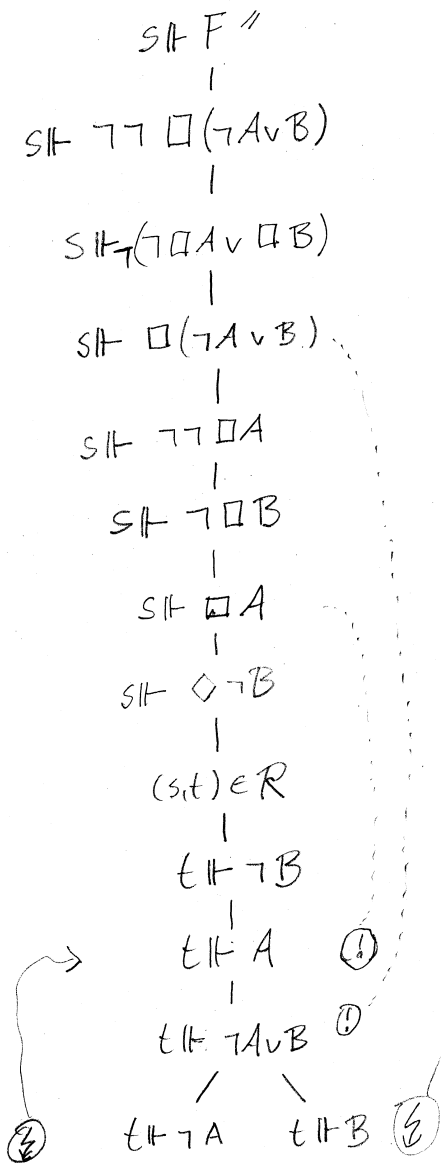 s⊩ F″
s⊩ ¬¬ □(¬A∨B)
s⊩¬(¬□A ∨ □B)
s⊩ □(¬A ∨ B)
s⊩ ¬¬□A
s⊩ ¬□B
s⊩ □A
s⊩ ◇¬B
(s,t) ∈ R
t⊩ ¬B
t⊩ A (!)
t⊩ ¬A∨B (!)
t⊩ ¬A t⊩ B